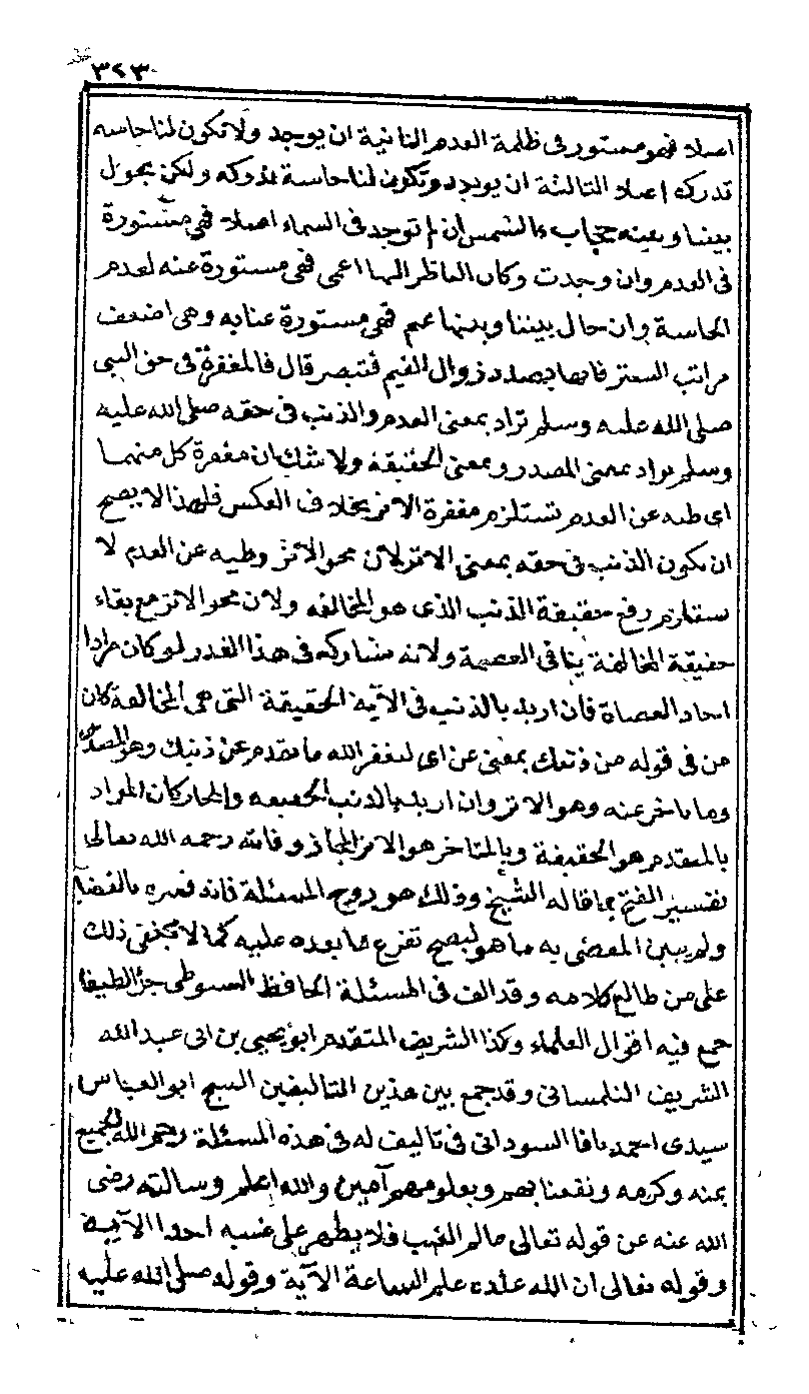 ٣٢٣
اصلا فهو مستور فى ظلمة العدم الثانية ان يوجد ولا تكون لنا حاسه
تدركه اصلا الثالثة ان يوجد وتكون لنا حاسة تدركه ولكن يحول
بيننا وبينه حجاب فالشمس ان لم توجد فى السماء اصلا فهى مستورة
فى العدم وان وجدت وكان الناظر اليها اعمى فهى مستورة عنه لعدم
الحاسة وان حال بيننا وبينها غيم فهى مستورة عنا به وهى اضعف
مراتب الستر فانها بصدد زوال الغيم فتبصر قال فالمغفرة فى حق النبى
صلى الله عليه وسلم تراد بمعنى العدم والذنب فى حقه صلى الله عليه
وسلم يراد بمعنى المصدر وبمعنى الحقيقة ولا شك ان مغفرة كل منهما
اى طيه عن العدم تستلزم مغفرة الاثر بخلاف العكس فلهذا لا يصح
ان يكون الذنب فى حقه بمعنى الاثر لان محو الاثر وطيه عن العدم لا
يستلزم رفع حقيقة الذنب الذى هو المخالفه ولان محو الاثر مع بقاء
حقيقة المخالفة ينافى العصمة ولانه مشاركه فى هذا القدر لو كان مرادا
احاد العصاة فان اريد بالذنب فى الآية الحقيقة التى هى المخالفة كان
من فى قوله من ذنبك بمعنى عن اى ليغفر الله ما تقدم عن ذنبك وهو المصدر
وما تاخر عنه وهو الاثر وان اريد بالذنب الحقيقه والمجاز كان المراد
بالمتقدم هو الحقيقة وبالمتاخر هو الاثر المجاز وفاته رحمه الله تعالى
تفسير الفتح بما قاله الشيخ وذلك هو روح المسئلة فانه فسره بالقضا
ولم يبين المقضى به ما هو ليصح تفرع ما بعده عليه كما لا يخفى ذلك
على من طالع كلامه وقد الف فى المسئلة الحافظ السيوطى جزأ لطيفا
جمع فيه اقوال العلماء وكذا الشريف المتقدم ابو يحيى بن ابى عبد الله
الشريف التلمسانى وقد جمع بين هذين التاليفين الشيخ ابو العباس
سيدى احمد بابا السودانى فى تاليف له فى هذه المسئلة رحم الله الجميع
بمنه وكرمه ونفعنا بهم وبعلومهم آمين والله اعلم وسالته رضى
الله عنه عن قوله تعالى عالم الغيب فلا يظهر على غيبه احدا الآية
وقوله تعالى ان الله عنده علم الساعة الآية وقوله صلى الله عليه